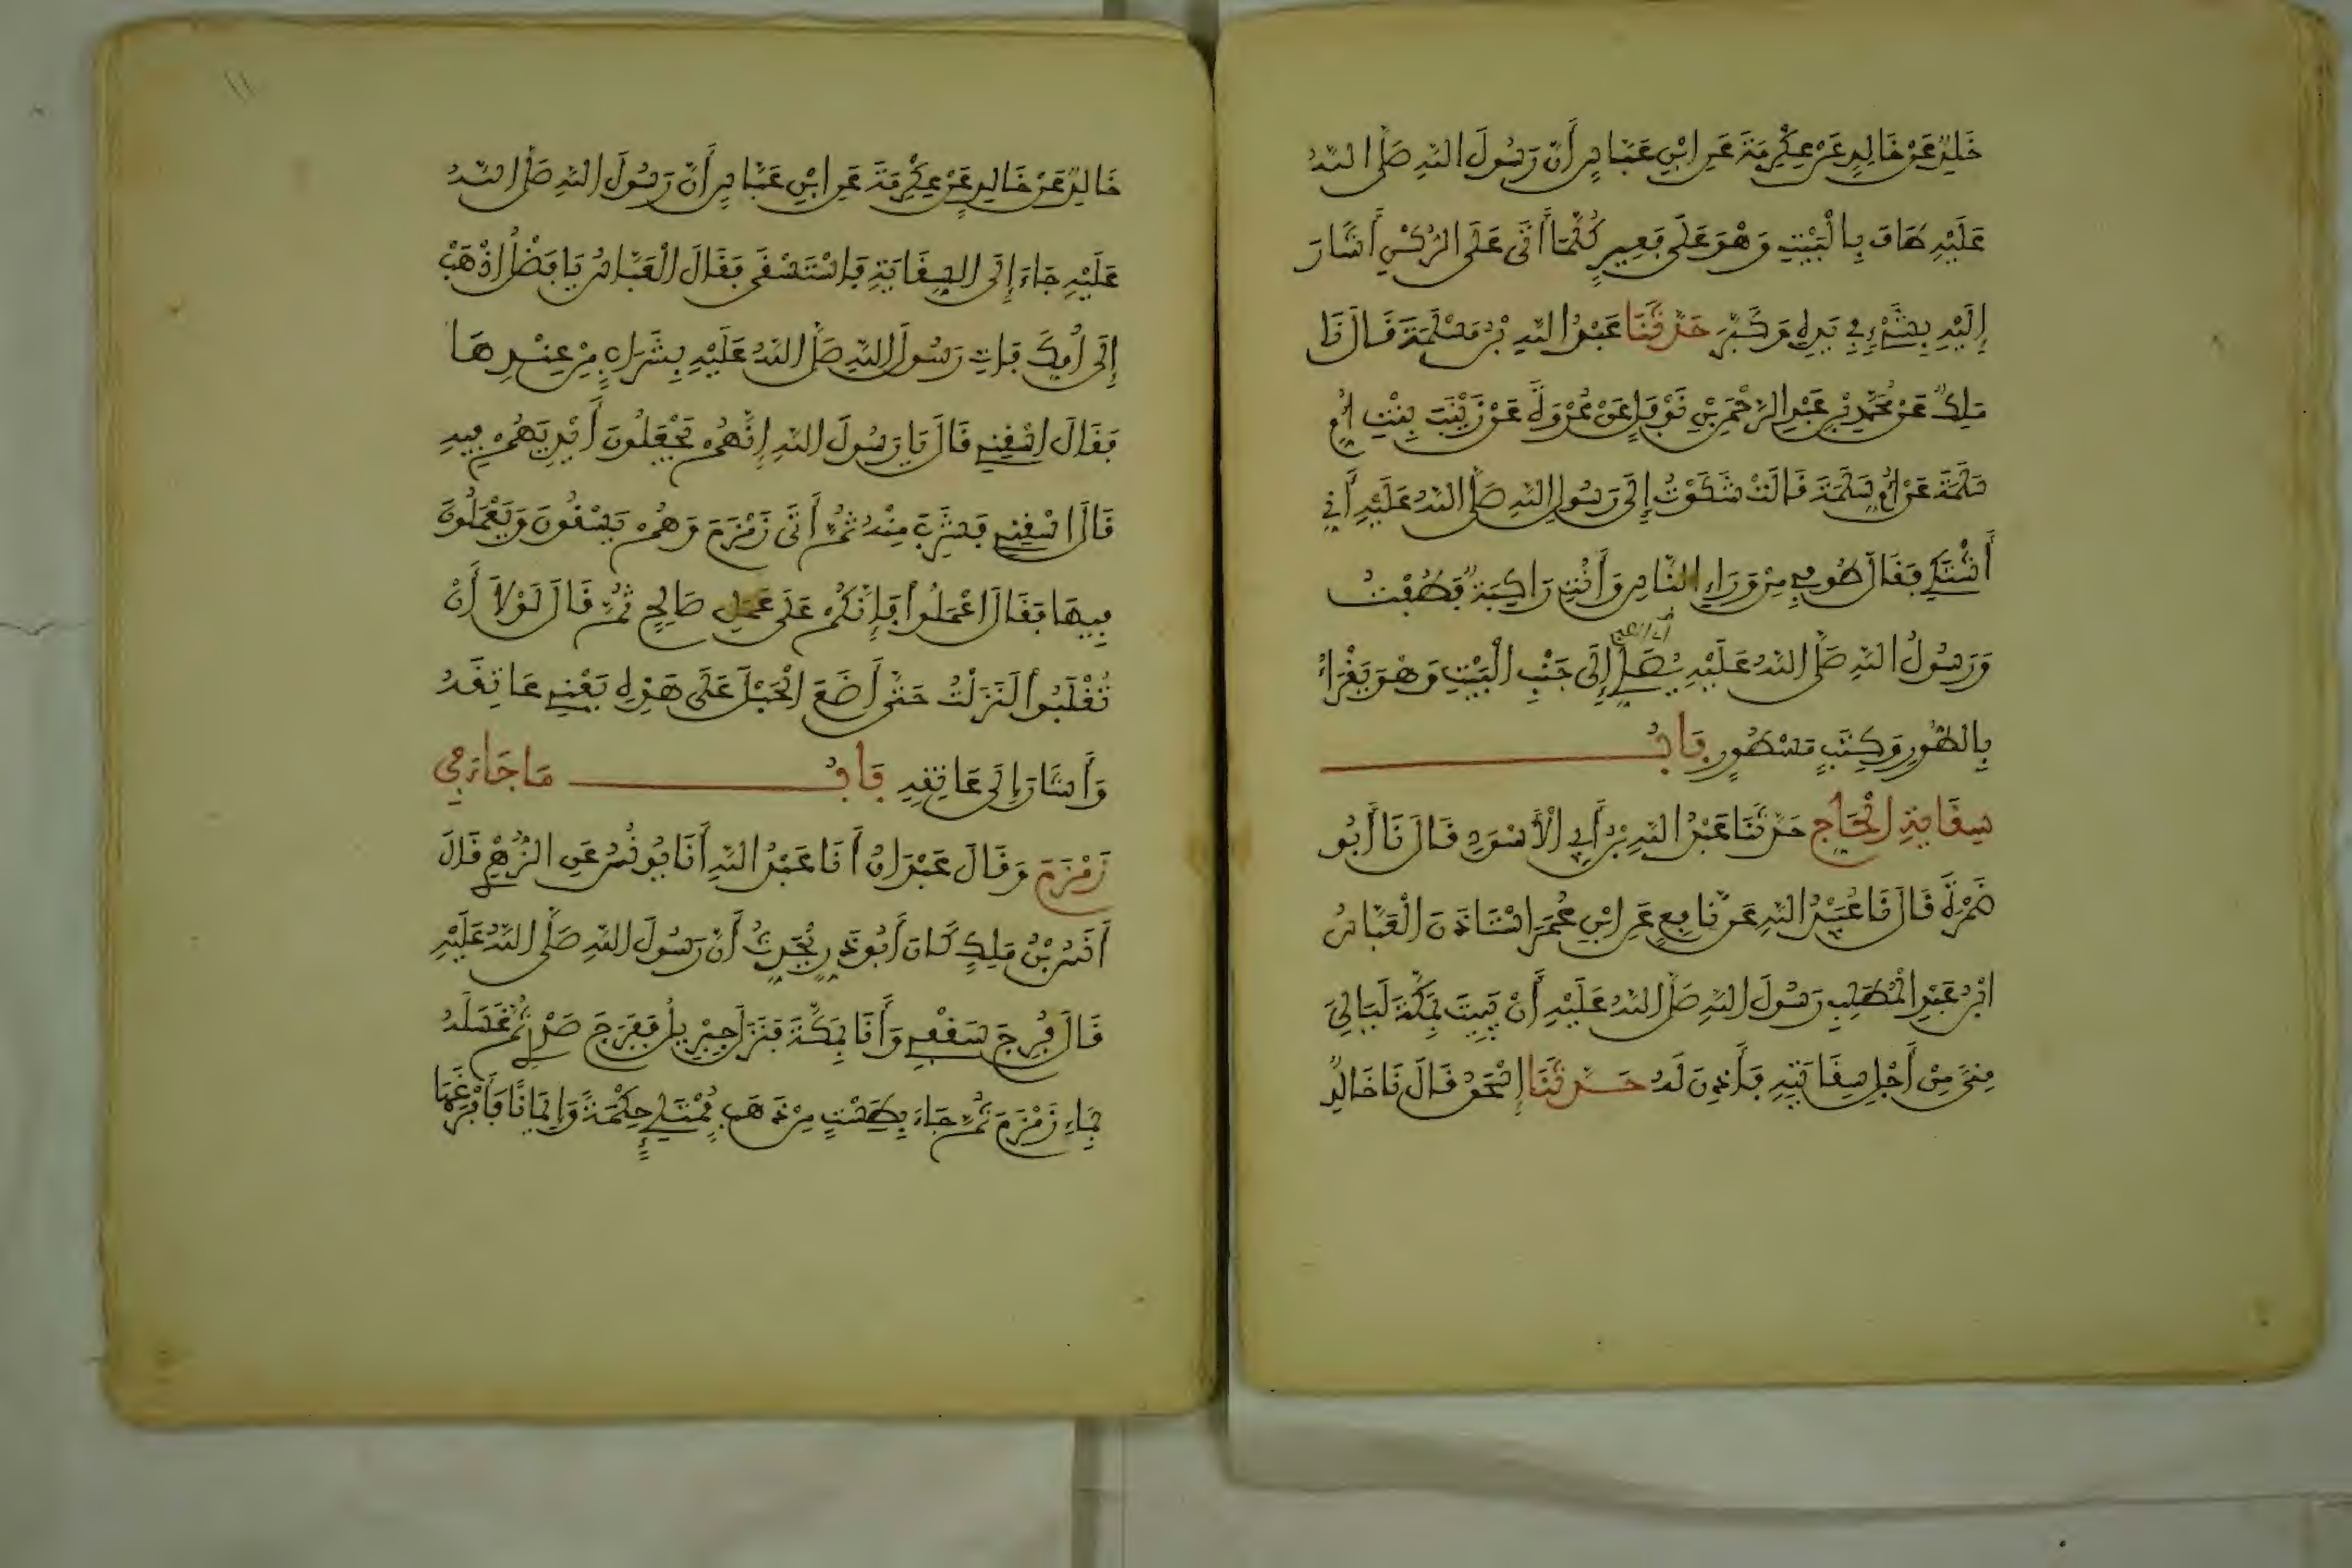 خَلِدٌ عَنْ خَالِدٍ عَنْ عِكْرِمَةَ عَنِ ابْنِ عَبَّاسٍ أَنَّ رَسُولَ اللَّهِ صَلَّى اللَّهُ
عَلَيْهِ طَافَ بِالْبَيْتِ وَهْوَ عَلَى بَعِيرٍ كُلَّمَا أَتَى عَلَى الرُّكْنِ أَشَارَ
إِلَيْهِ بِشَيْءٍ فِي يَدِهِ وَكَبَّرَ حَدَّثَنَا عَبْدُ اللَّهِ بْنُ مَسْلَمَةَ قَالَ نَا
مَلِكٌ عَنْ مُحَمَّدِ بْنِ عَبْدِ الرَّحْمَنِ بْنِ نَوْفَلٍ عَنْ عُرْوَةَ عَنْ زَيْنَبَ بِنْتِ أُمِّ
سَلَمَةَ عَنْ أُمِّ سَلَمَةَ قَالَتْ شَكَوْتُ إِلَى رَسُولِ اللَّهِ صَلَّى اللَّهُ عَلَيْهِ أَنِّي
أَشْتَكِي فَقَالَ طُوفِي مِنْ وَرَاءِ النَّاسِ وَأَنْتِ رَاكِبَةٌ فَطُفْتُ
وَرَسُولُ اللَّهِ صَلَّى اللَّهُ عَلَيْهِ يُصَلِّي إِلَى جَنْبِ الْبَيْتِ وَهْوَ يَقْرَأُ
بِالطُّورِ وَكِتَبٍ مَسْطُورٍ بَابُ
سِقَايَةِ الْحَاجِّ حَدَّثَنَا عَبْدُ اللَّهِ بْنُ أَبِي الْأَسْوَدِ قَالَ نَا أَبُو
ضَمْرَةَ قَالَ نَا عُبَيْدُ اللَّهِ عَنْ نَافِعٍ عَنِ ابْنِ عُمَرَ اسْتَاذَنَ الْعَبَّاسُ
ابْنُ عَبْدِ الْمُطَّلِبِ رَسُولَ اللَّهِ صَلَّى اللَّهُ عَلَيْهِ أَنْ يَبِيتَ بِمَكَّةَ لَيَالِيَ
مِنًى مِنْ أَجْلِ سِقَايَتِهِ فَأَذِنَ لَهُ حَدَّثَنَا إِسْحَقُ قَالَ نَا خَالِدٌ
خَالِدٌ عَنْ خَالِدٍ عَنْ عِكْرِمَةَ عَنِ ابْنِ عَبَّاسٍ أَنَّ رَسُولَ اللَّهِ صَلَّى اللَّهُ
عَلَيْهِ جَاءَ إِلَى السِّقَايَةِ فَاسْتَسْقَى فَقَالَ الْعَبَّاسُ يَا فَضْلُ اذْهَبْ
إِلَى أُمِّكَ فَاتِ رَسُولَ اللَّهِ صَلَّى اللَّهُ عَلَيْهِ بِشَرَابٍ مِنْ عِنْدِهَا
فَقَالَ اسْقِنِي قَالَ يَا رَسُولَ اللَّهِ إِنَّهُمْ يَجْعَلُونَ أَيْدِيَهُمْ فِيهِ
قَالَ اسْقِنِي فَشَرِبَ مِنْهُ ثُمَّ أَتَى زَمْزَمَ وَهُمْ يَسْقُونَ وَيَعْمَلُونَ
فِيهَا فَقَالَ اعْمَلُوا فَإِنَّكُمْ عَلَى عَمَلٍ صَالِحٍ ثُمَّ قَالَ لَوْلَا أَنْ
تُغْلَبُوا لَنَزَلْتُ حَتَّى أَضَعَ الْحَبْلَ عَلَى هَذِهِ يَعْنِي عَاتِقَهُ
وَأَشَارَ إِلَى عَاتِقِهِ بَابُ مَا جَاءَ فِي
زَمْزَمَ وَقَالَ عَبْدَانُ أَنَا عَبْدُ اللَّهِ أَنَا يُونُسُ عَنِ الزُّهْرِيِّ قَالَ
أَنَسُ بْنُ مَلِكٍ كَانَ أَبُو ذَرٍّ يُحَدِّثُ أَنَّ رَسُولَ اللَّهِ صَلَّى اللَّهُ عَلَيْهِ
قَالَ فُرِجَ سَقْفِي وَأَنَا بِمَكَّةَ فَنَزَلَ جِبْرِيلُ فَفَرَجَ صَدْرِي ثُمَّ غَسَلَهُ
بِمَاءِ زَمْزَمَ ثُمَّ جَاءَ بِطَسْتٍ مِنْ ذَهَبٍ مُمْتَلِئٍ حِكْمَةً وَإِيمَانًا فَأَفْرَغَهَا